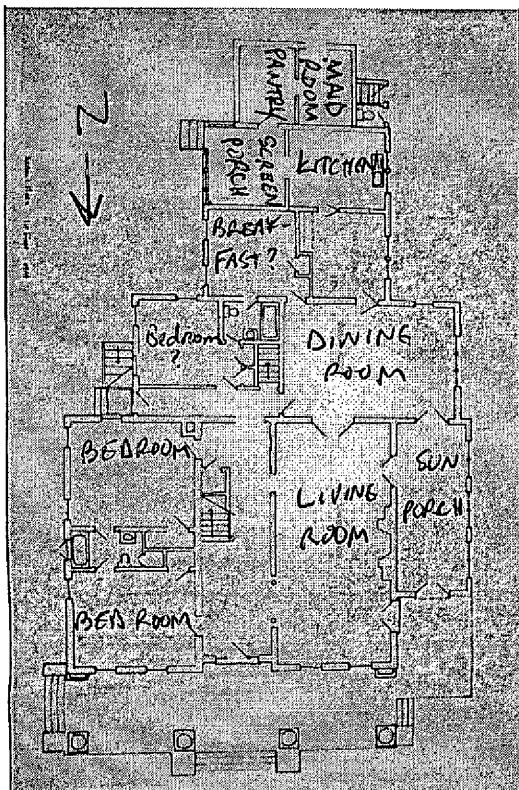 MAID
ROOM
PANTRY
SCREEN
PORCH
KITCHEN
BREAK-
FAST?
Bedroom
?
DINING
ROOM
BEDROOM
LIVING
ROOM
SUN
PORCH
BED ROOM
N